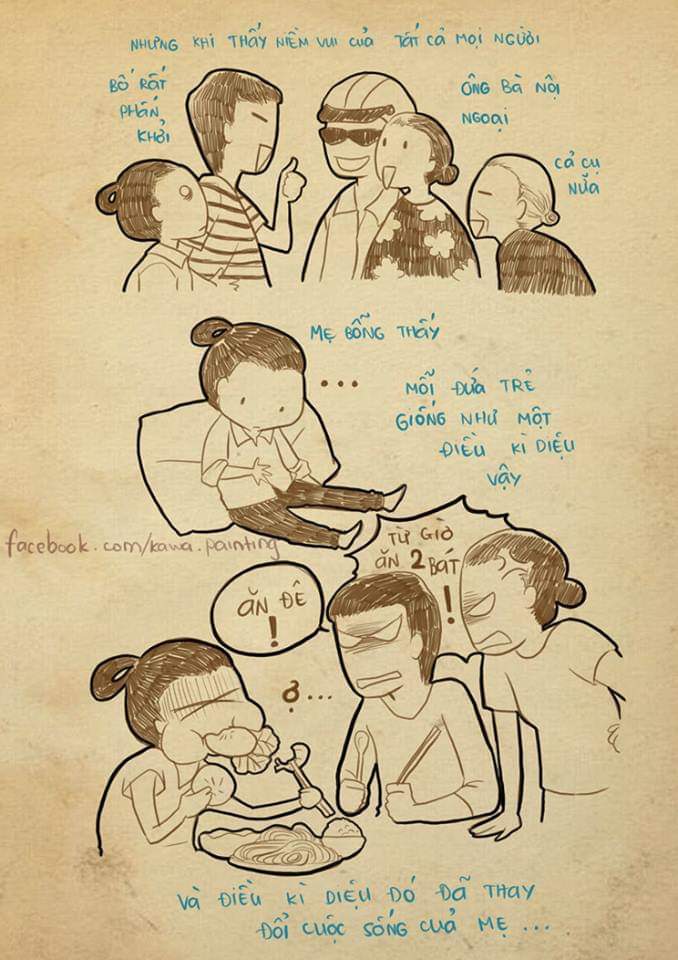 NHƯNG KHI THẤY NIỀM VUI CỦA TẤT CẢ MỌI NGƯỜI
BỐ RẤT
PHẤN
KHỞI
ÔNG BÀ NỘI
NGOẠI
CẢ CỤ
NỮA
MẸ BỖNG THẤY
...
MỖI ĐỨA TRẺ
GIỐNG NHƯ MỘT
ĐIỀU KÌ DIỆU
VẬY
facebook.com/kawa.painting
TỪ GIỜ
ĂN 2 BÁT
!
ĂN ĐÊ
!
Ợ...
VÀ ĐIỀU KÌ DIỆU ĐÓ ĐÃ THAY
ĐỔI CUỘC SỐNG CUẢ MẸ ...